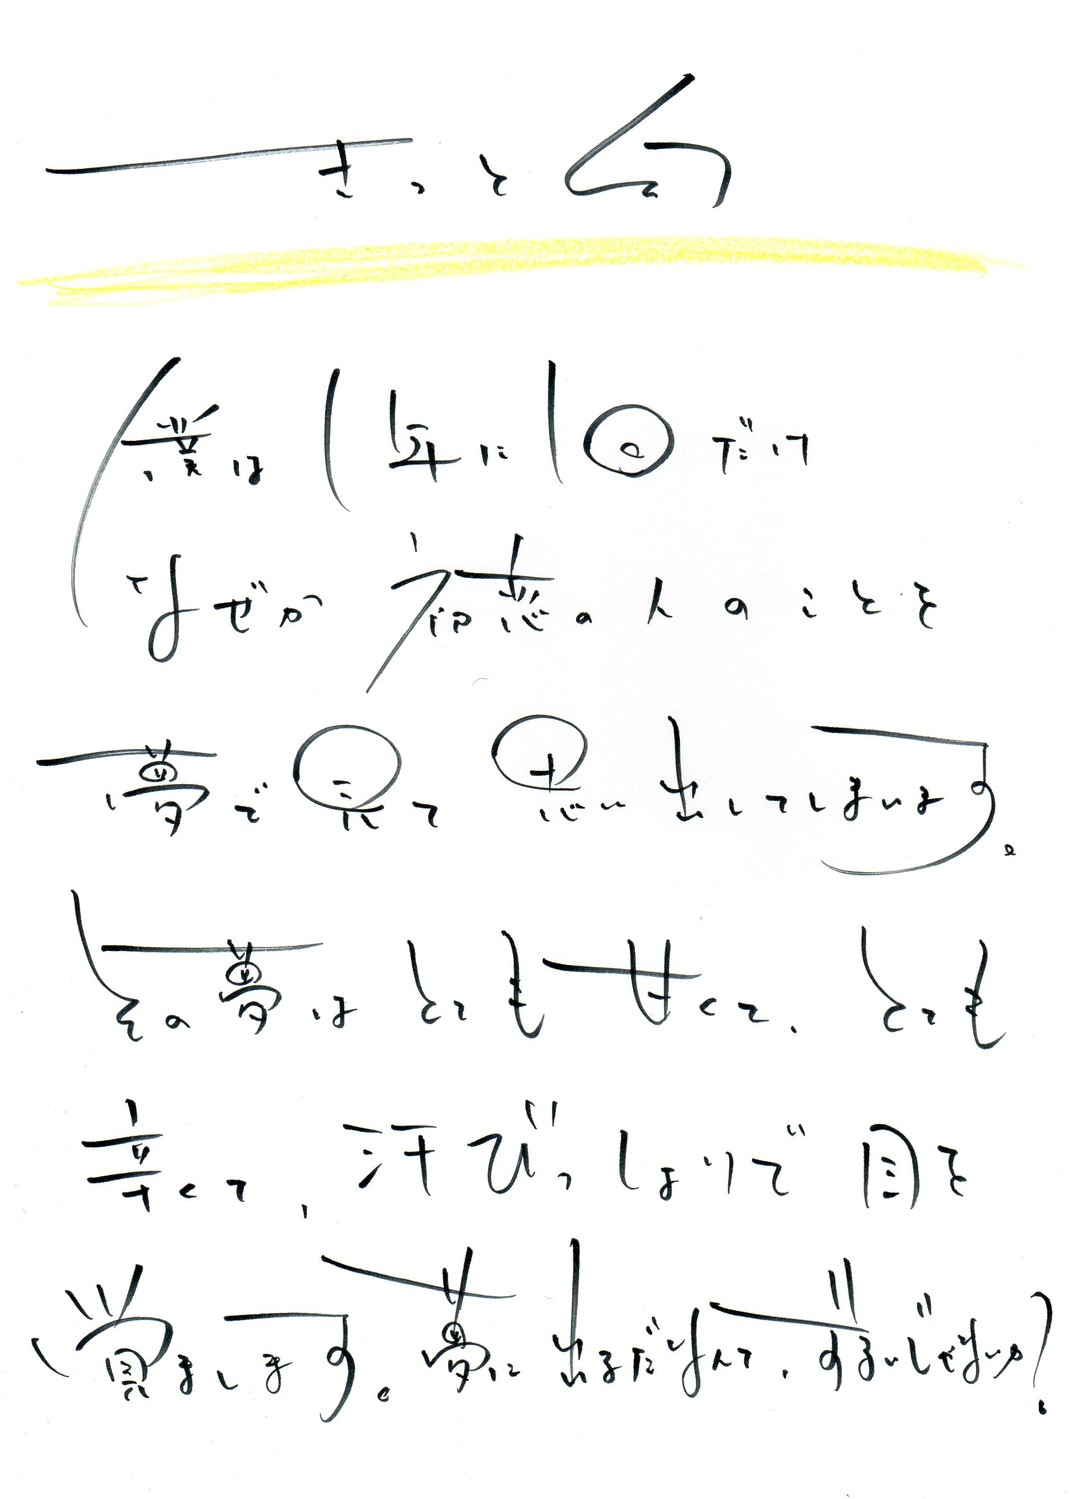 きっと幻
僕は1年に1回だけ
なぜか初恋の人のことを
夢で見て思い出してしまいます。
その夢はとても甘くて、とても
辛くて、汗びっしょりで目を
覚まします。夢に出るだなんて、ずるいじゃないか?